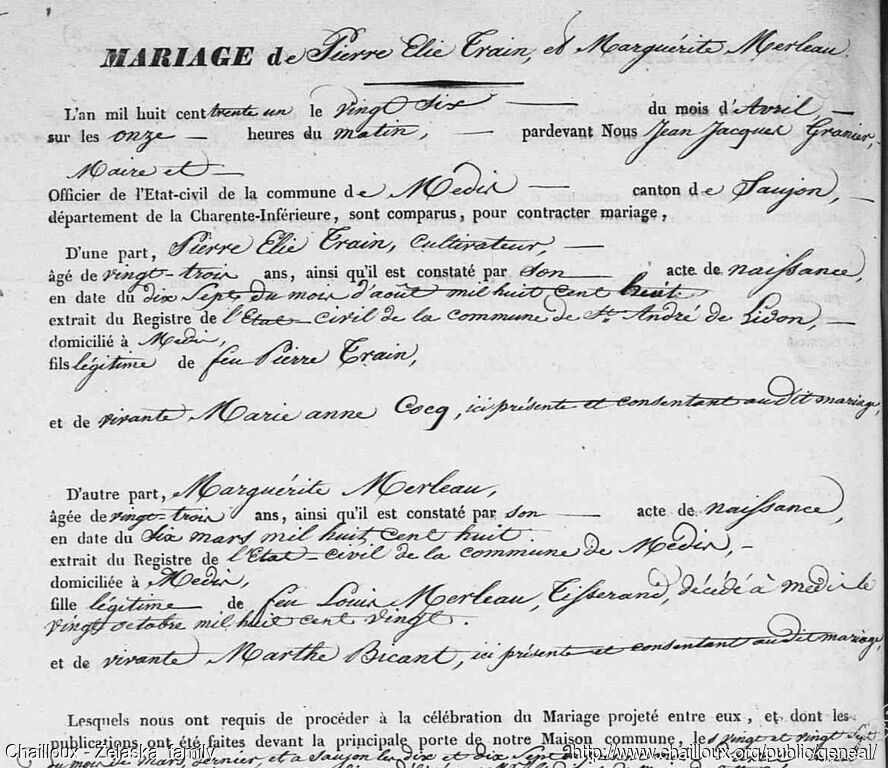 MARIAGE de Pierre Elie Train, et Marguérite Merleau.
L'an mil huit cent trente un le vingt six du mois d'Avril
sur les onze heures du matin, pardevant Nous Jean Jacques Granier,
Maire et
Officier de l'Etat-civil de la commune de Medis canton de Saujon,
département de la Charente-Inférieure, sont comparus, pour contracter mariage,
D'une part, Pierre Elie Train, Cultivateur,
âgé de vingt-trois ans, ainsi qu'il est constaté par son acte de naissance,
en date du dix Sept du mois d'août mil huit cent huit
extrait du Registre de l'Etat-civil de la commune de St. André de Lidon,
domicilié à Medis,
fils légitime de feu Pierre Train,
et de vivante Marie anne Cocq, ici présente et consentant au dit mariage,
D'autre part, Marguérite Merleau,
âgée de vingt-trois ans, ainsi qu'il est constaté par son acte de naissance,
en date du Six mars mil huit cent huit.
extrait du Registre de l'Etat-civil de la commune de Medis,
domiciliée à Medis,
fille légitime de feu Louis Merleau, Tisserand, décédé à medis le
vingt octobre mil huit cent vingt.
et de vivante Marthe Bicant, ici présente et consentant au dit mariage,
Lesquels nous ont requis de procéder à la célébration du Mariage projeté entre eux, et dont les
publications ont été faites devant la principale porte de notre Maison commune, les vingt et vingt Sept
du mois de mars dernier, et a Saujon les dix et dix Sept
Chailloux - Zelaska family
http://www.chailloux.org/public/geneal/